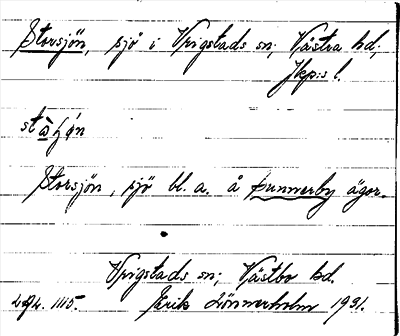 Storsjön, sjö i Vrigstads sn; Västra hd;
Jkp:s l.
Storsjön, sjö bl. a. å Sunnerby ägor.
Vrigstads sn; Västbo hd.
Erik Linnerholm 1931.